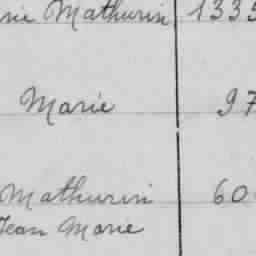 Mathurin 1335
Marie 97
Mathurin 60
Jean Marie